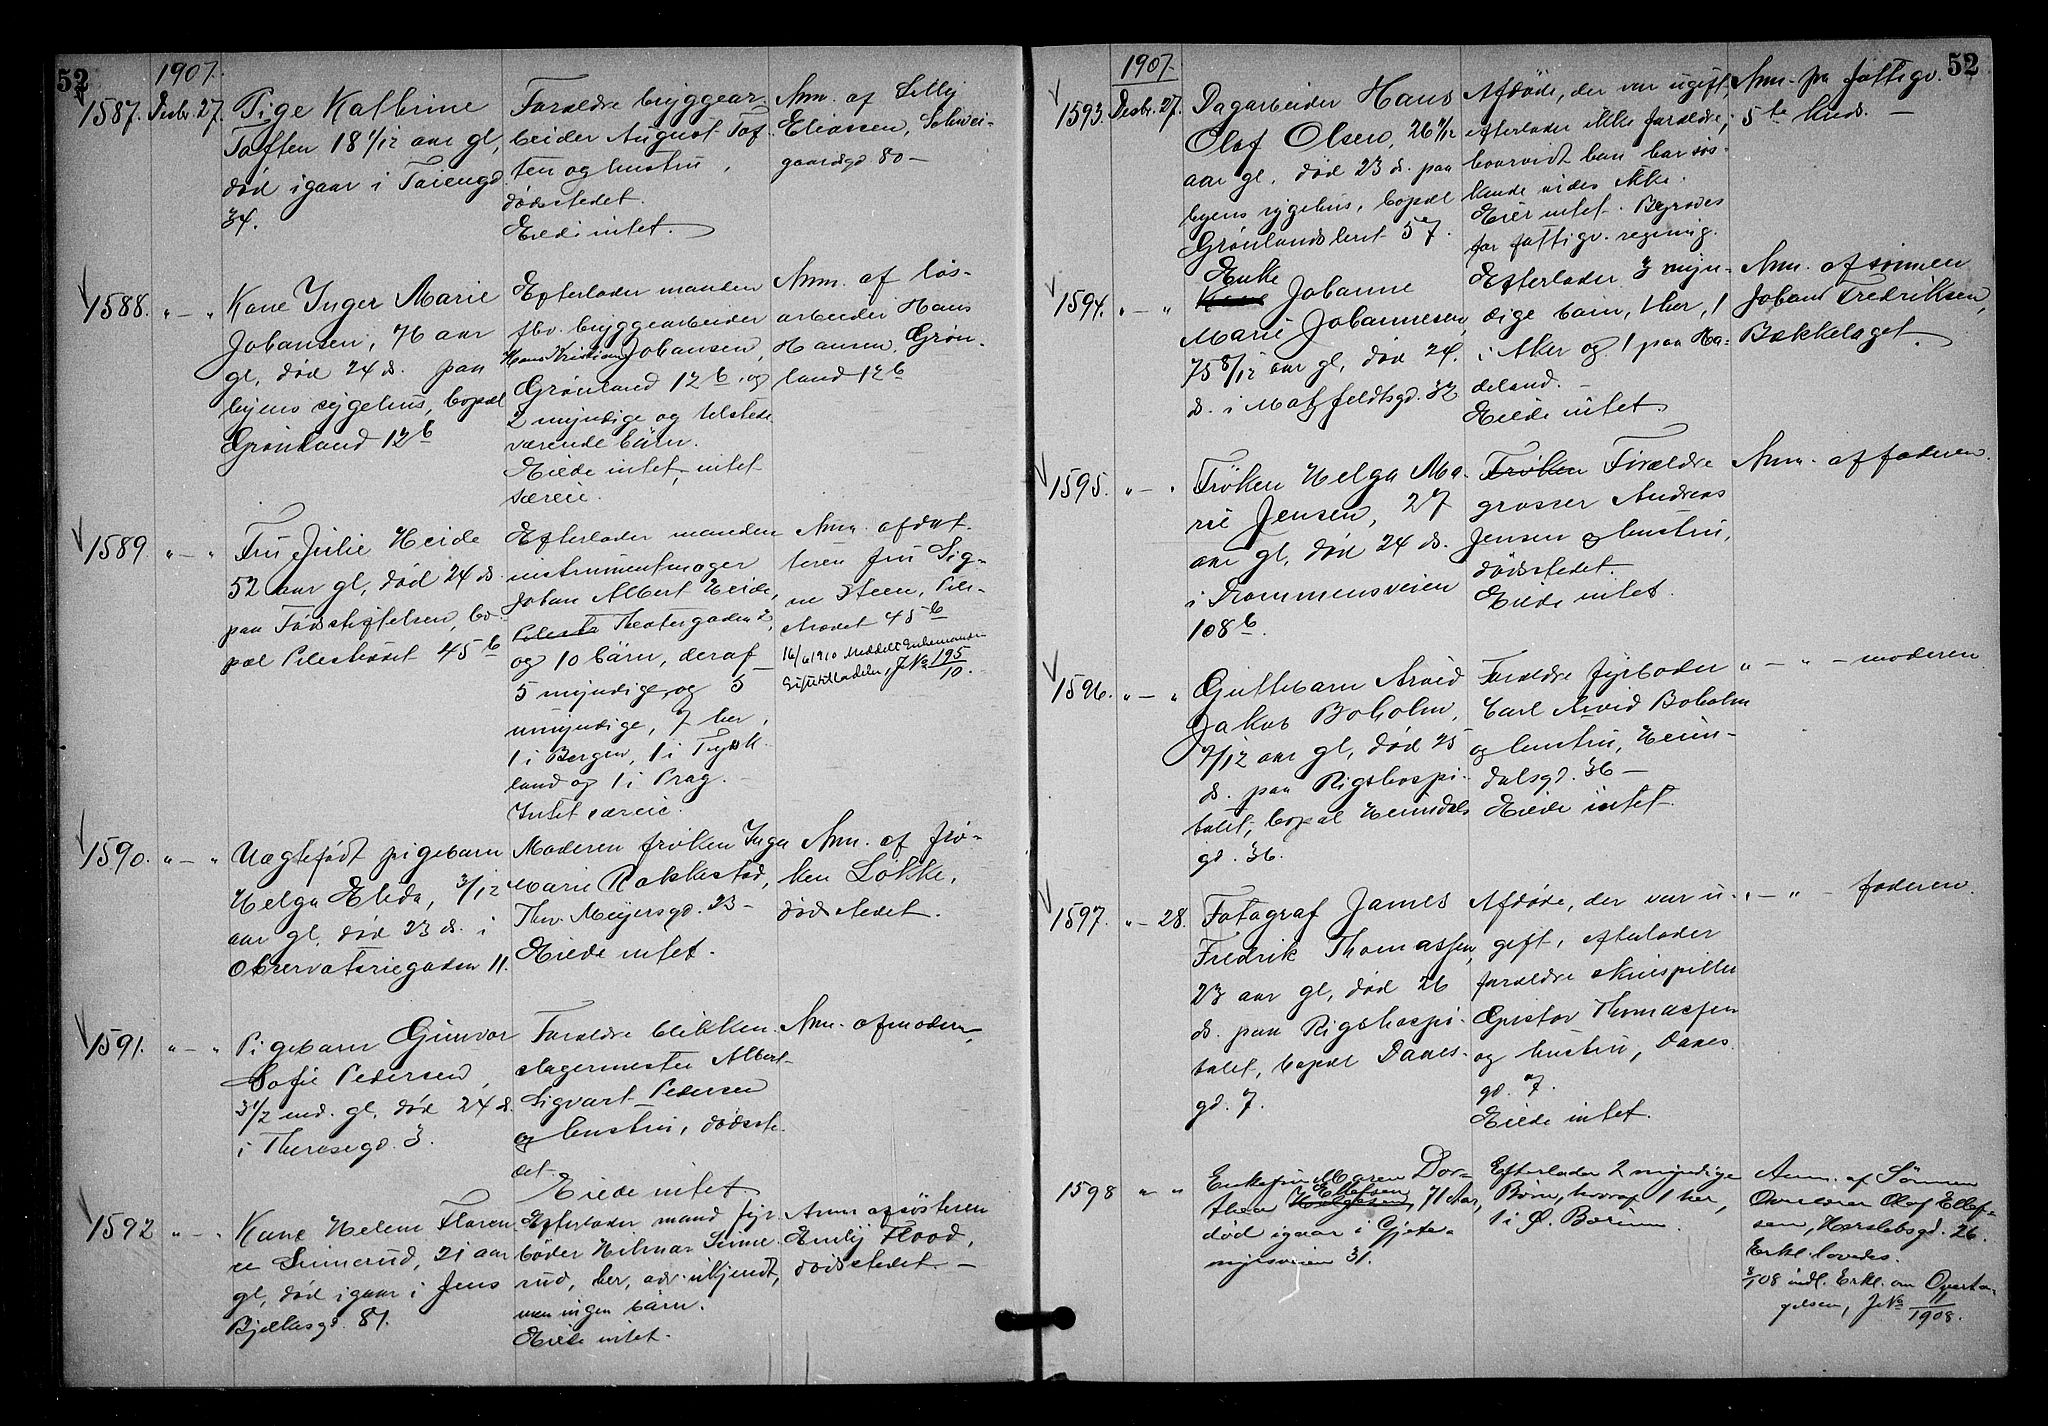 52
1907.
1587. Desbr. 27. Pige Kathrine
Toften 18 1/12 aar gl,
død igaar i Tøiengd.
34.
Forældre bryggear-
beider August Tof-
ten og hustru,
dødsstedet.
Eiede intet.
Anm. af Lilly
Eliassen, Schwei-
gaardsgd 80 –
1588. " – " Kone Inger Marie
Johansen, 76 aar
gl, død 24 ds. paa
byens sygehus, bopæl
Grønland 12 b
Efterlader manden
fhv. bryggearbeider
Hans Kristian Johansen,
Grønland 12 b. og
2 myndige og tilstede-
værende børn.
Eiede intet, intet
særeie.
Anm. af løs-
arbeider Hans
Hansen, Grøn-
land 12 b
1589. " – " Fru Julie Heide
52 aar gl, død 24 ds
paa Fødselsstiftelsen, bo-
pæl Pilestrædet 45 b
Efterlader manden
instrumentmager
Johan Albert Heide,
Pilestr. Theatergaden 2,
og 10 børn, deraf
5 myndige, og 5
umyndige, 7 her,
1 i Bergen, 1 i Tysk-
land og 1 i Prag. –
Intet særeie.
Anm. af dat-
teren fru Sig-
ne Steen, Pile-
strædet 45 b
16/6 1910 Meddelt Enkemanden
Skiftetilladelse, J No 195/10. –
1590. " – " Uægtefødt pigebarn
Helga Elida, 3/12
aar gl, død 23 ds. i
Observatoriegaden 11.
Moderen frøken Inga
Marie Rakkestad,
Thv. Meyersgd. 23 –
Eiede intet.
Anm. af frø-
ken Løkke,
dødsstedet.
1591. " – " Pigebarn Gunvor
Sofie Pedersen,
3 1/2 md. gl, død 24 ds.
i Theresegd. 3.
Forældre blikken-
slagermester Albert
Sigvart Pedersen
og hustru, dødsste-
det.
Eiede intet
Anm. af moderen,
1592 " – " Kone Helene Floren-
ce Simerud, 21 aar
gl, død igaar i Jens
Bjelkesgd. 81.
Efterlader mand fyr-
bøder Hilmar Sime-
rud, her, adr. ukjendt,
men ingen børn.
Eiede intet.
Anm af søsteren
Emily Flood,
dødsstedet –
52
1907.
1593. Desbr. 27. Dagarbeider Hans
Olaf Olsen, 26 9/12
aar gl. død 23 ds. paa
byens sygehus, bopæl
Grønlandsleret 57.
Afdøde, der var ugift,
efterlader ikke forældre;
hvorvidt han har søs-
kende vides ikke.
Eier intet. Begraves
for fattigv. regning.
Anm. fra fattigv.
5te kreds. –
1594. " – " Enke
Kone Johanne
Marie Johannesen,
75 8/12 aar gl, død 24.
ds. i Motzfeldtsgd. 32
Efterlader 3 myn-
dige børn, 1 her, 1
i Aker og 1 paa Ha-
deland. –
Eiede intet.
Anm. af sønnen
Johan Fredriksen,
Bækkelaget.
1595. " – " Frøken Helga Ma-
rie Jensen, 27
aar gl, død 24 ds.
i Drammensveien
108 b.
Frøken Forældre
grosser Andreas
Jensen og hustru,
dødsstedet.
Eiede intet.
Anm. af faderen.
1596. " – " Guttebarn Arvid
Jakob Boholm,
7/12 aar gl, død 25
ds. paa Rigshospi-
talet, bopæl Heimdals
gd. 36.
Forældre fyrbøder
Carl Arvid Boholm
og hustru, Heim-
dalsgd. 36 –
Eiede intet
" – " – moderen
1597. " – 28. Fotograf James
Fredrik Thomassen,
23 aar gl, død 26
ds. paa Rigshospi-
talet, bopæl Daaes-
gd. 7.
Afdøde, der var u-
gift, efterlader
forældre skuespiller
Gustav Thomassen
og hustru, Daaes
gd. 7.
Eiede intet.
" – " – faderen.
1598 " " Enkefru Maren Dor-
thea Helgesen Ellefsen, 71 Aar,
død igaar i Gjete-
myrsveien 31.
Efterlader 2 myndige
Børn, hvoraf 1 her,
1 i Ø. Bærum.
Anm. af Sønnen
Olaf Ellef-
sen, Herslebsgd. 26.
Erkl. lovedes.
08 indl. Erkl. om Overta-
gelsen, J No 11/1908.